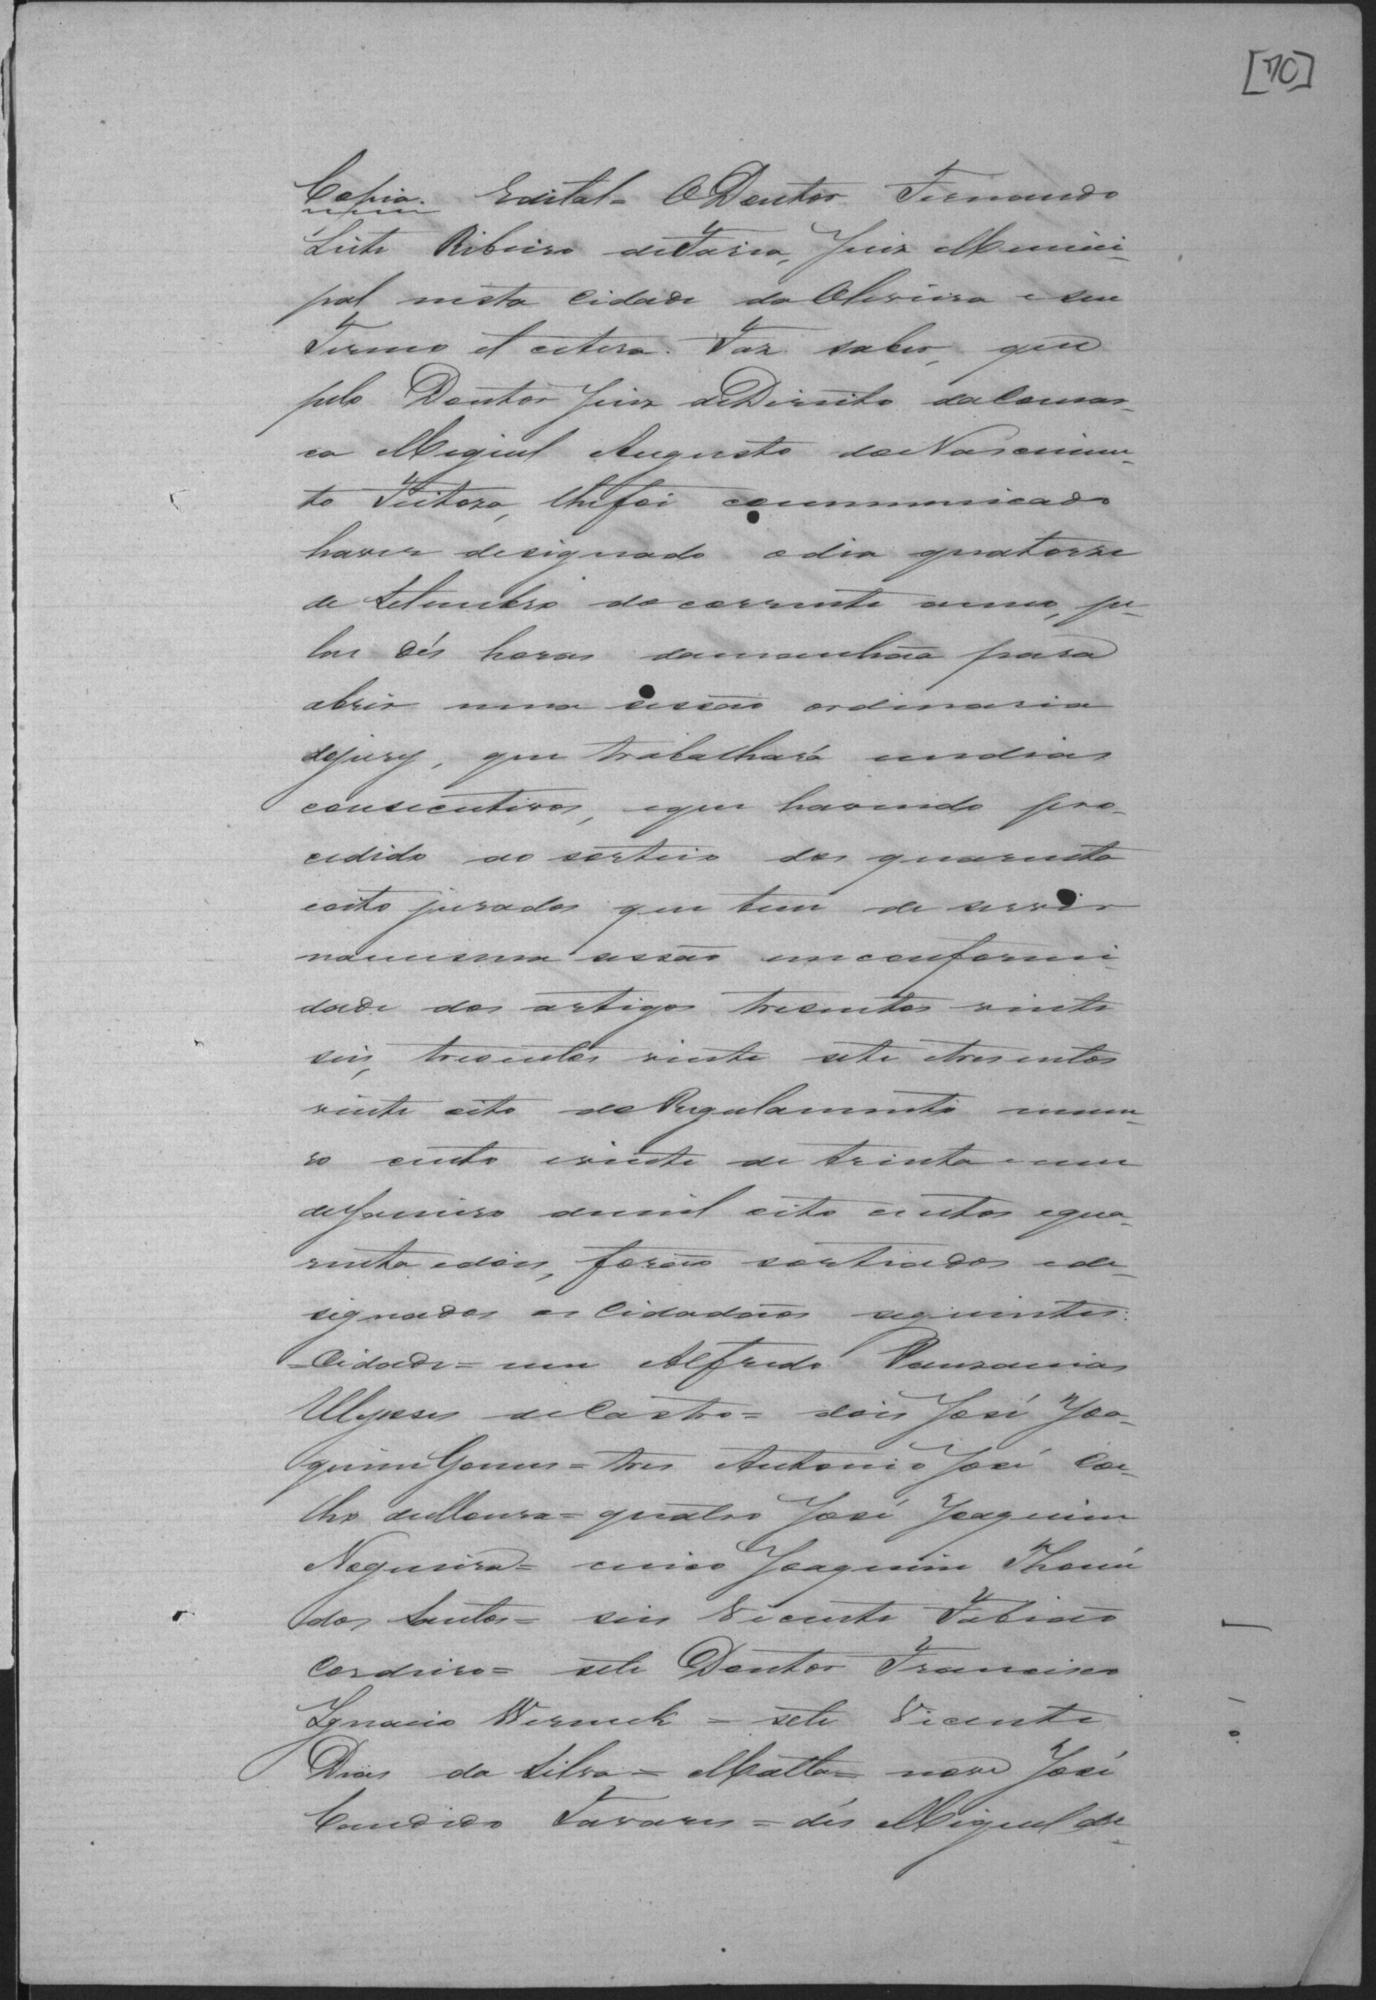 [70]
Copia. Edital = O Doutor Fernando
Leite Ribeiro de Faria, Juiz Munici-
pal nesta Cidade da Oliveira e seu
Termo et cetera. Faz saber, que
pelo Doutor Juiz de Direito da Comar-
ca Miguel Augusto do Nascimen-
to Feitosa, lhe foi communicado
haver designado o dia quatorze
de Setembro do corrente anno, pe-
las dés horas da manhãa para
abrir uma sessão ordinaria
do jury, que trabalhará em dias
consecutivos, e que havendo pro-
cedido ao sorteio dos quarenta
e oito jurados que tem de servir
na mesma sessão em conformi-
dade dos artigos tresentos vinte
seis, tresentos vinte sete e tresentos
vinte oito do Regulamento nume-
ro cento e vinte de trinta e um
de Janeiro de mil oito centos e qua-
renta e dois, forão sorteados e de-
signados os Cidadãos seguintes:
= Cidade = um Alfredo Pausanias
Ulysses de Castro = dois José Joa-
quim Gomes = tres Antonio José Coe-
lho de Moura = quatro José Joaquim
Nogueira = cinco Joaquim Thomé
dos Santos = seis Vicente Fabiano
Cordeiro = sete Doutor Francisco
Ignacio Werneck = sete Vicente
Dias da Silva = Matta = nove José
Candido Tavares = dés Miguel de